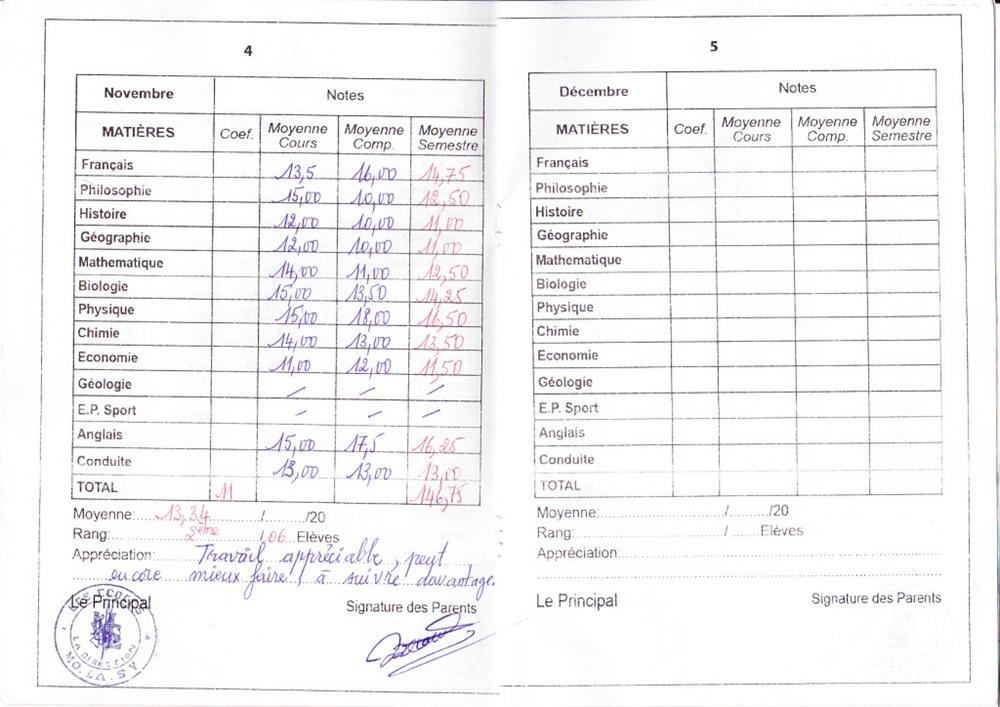 4
Novembre Notes
MATIÈRES Coef. Moyenne Cours Moyenne Comp. Moyenne Semestre
Français 13,5 16,00 14,75
Philosophie 15,00 10,00 12,50
Histoire 12,00 10,00 11,00
Géographie 12,00 10,00 11,00
Mathematique 14,00 11,00 12,50
Biologie 15,00 13,50 14,25
Physique 15,00 18,00 16,50
Chimie 14,00 13,00 13,50
Economie 11,00 12,00 11,50
Géologie / / /
E.P. Sport / / /
Anglais 15,00 17,5 16,25
Conduite 13,00 13,00 13,00
TOTAL 11 146,75
Moyenne: 13,34 / /20
Rang: 2ème / 06 Elèves
Appréciation: Travail appréciable, peut
encore mieux faire, à suivre davantage.
Le Principal Signature des Parents
LA DIRECTION
MO.LA.SY
5
Décembre Notes
MATIÈRES Coef. Moyenne Cours Moyenne Comp. Moyenne Semestre
Français
Philosophie
Histoire
Géographie
Mathematique
Biologie
Physique
Chimie
Economie
Géologie
E.P. Sport
Anglais
Conduite
TOTAL
Moyenne: / /20
Rang: / Elèves
Appréciation:
Le Principal Signature des Parents